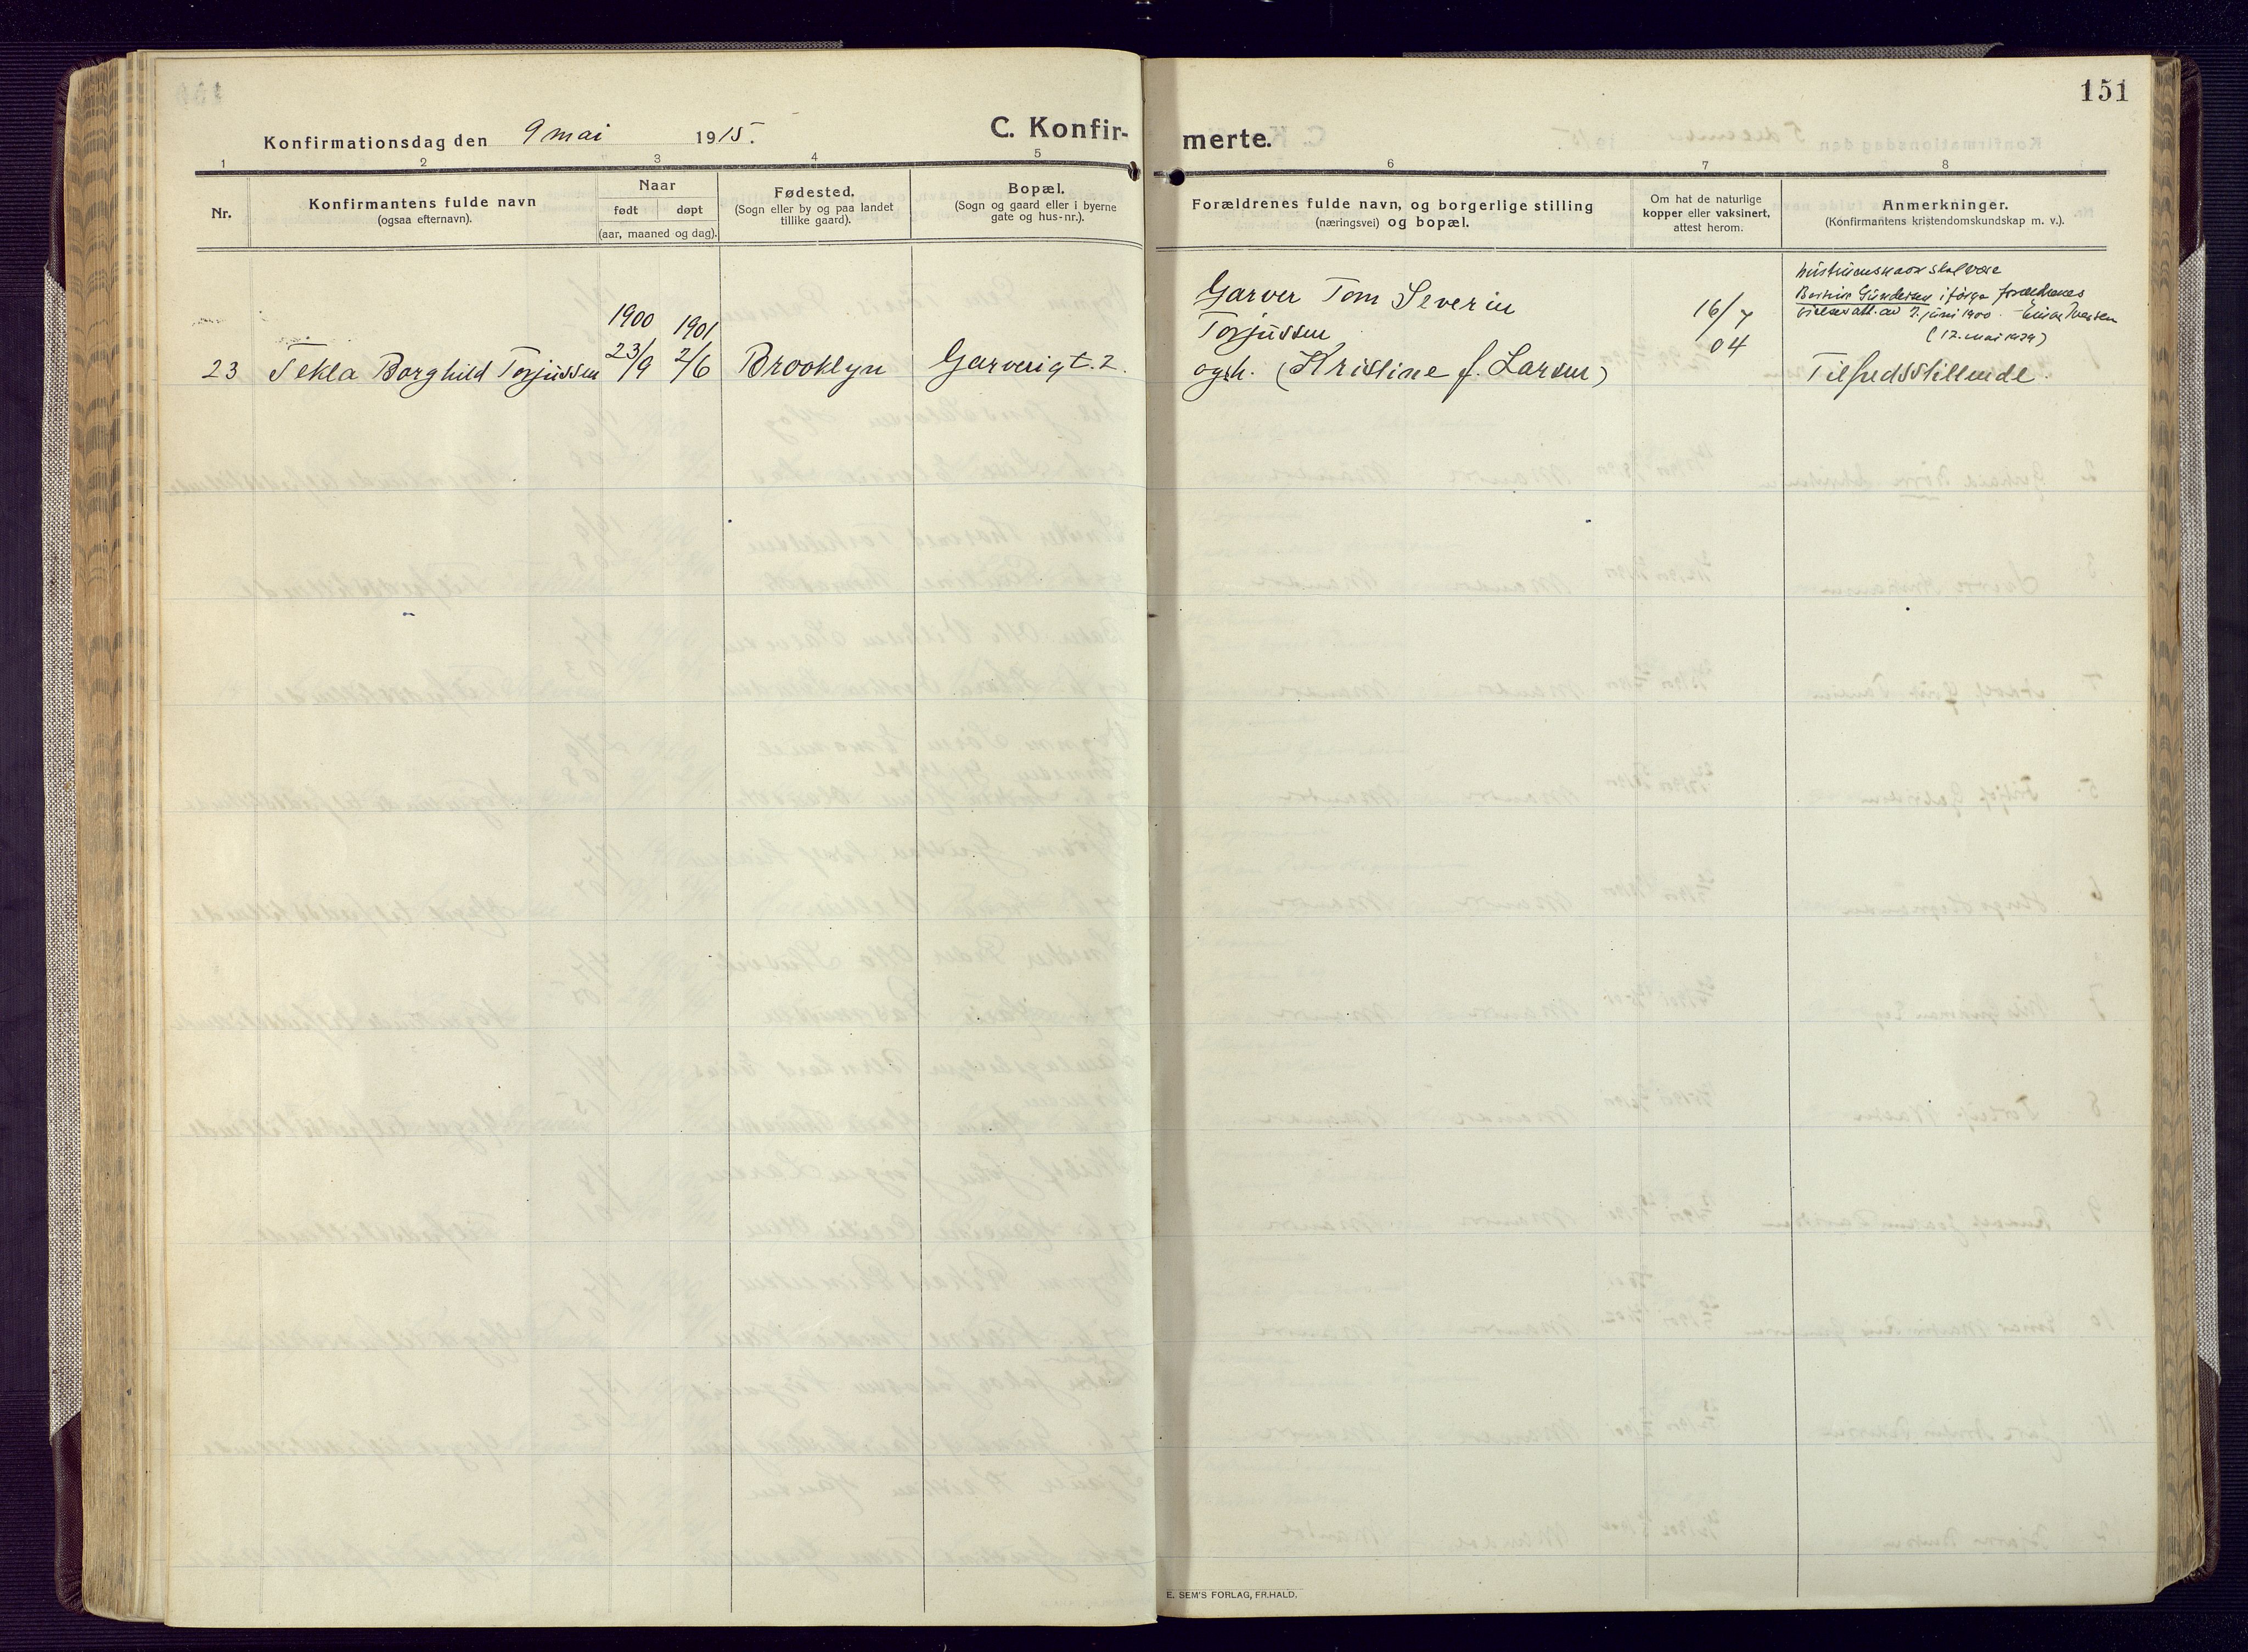 151
Konfirmationsdag den 9 mai 1915.
C. Konfir-
merte.
1 2 3 4 5 6 7 8
Nr.
Konfirmantens fulde navn
(ogsaa efternavn).
Naar
født døpt
(aar, maaned og dag).
Fødested.
(Sogn eller by og paa landet
tillike gaard).
Bopæl.
(Sogn og gaard eller i byerne
gate og hus-nr.).
Forældrenes fulde navn, og borgerlige stilling
(næringsvei) og bopæl.
Om hat de naturlige
kopper eller vaksinert,
attest herom.
Anmerkninger.
(Konfirmantens kristendomskundskap m. v.).
23 Tekla Borghild Torjussen
1900
23/9
1901
2/6
Brooklyn
Garverigt. 2.
Garver Tom Severin
Torjussen
og h. (Kristine f. Larsen)
16/7
04
skal være
Gundersen ifølge forældrenes
vielsesatt. av 7. juni 1900.
Tilfredsstillende.
E. SEM'S FORLAG, FR.HALD.